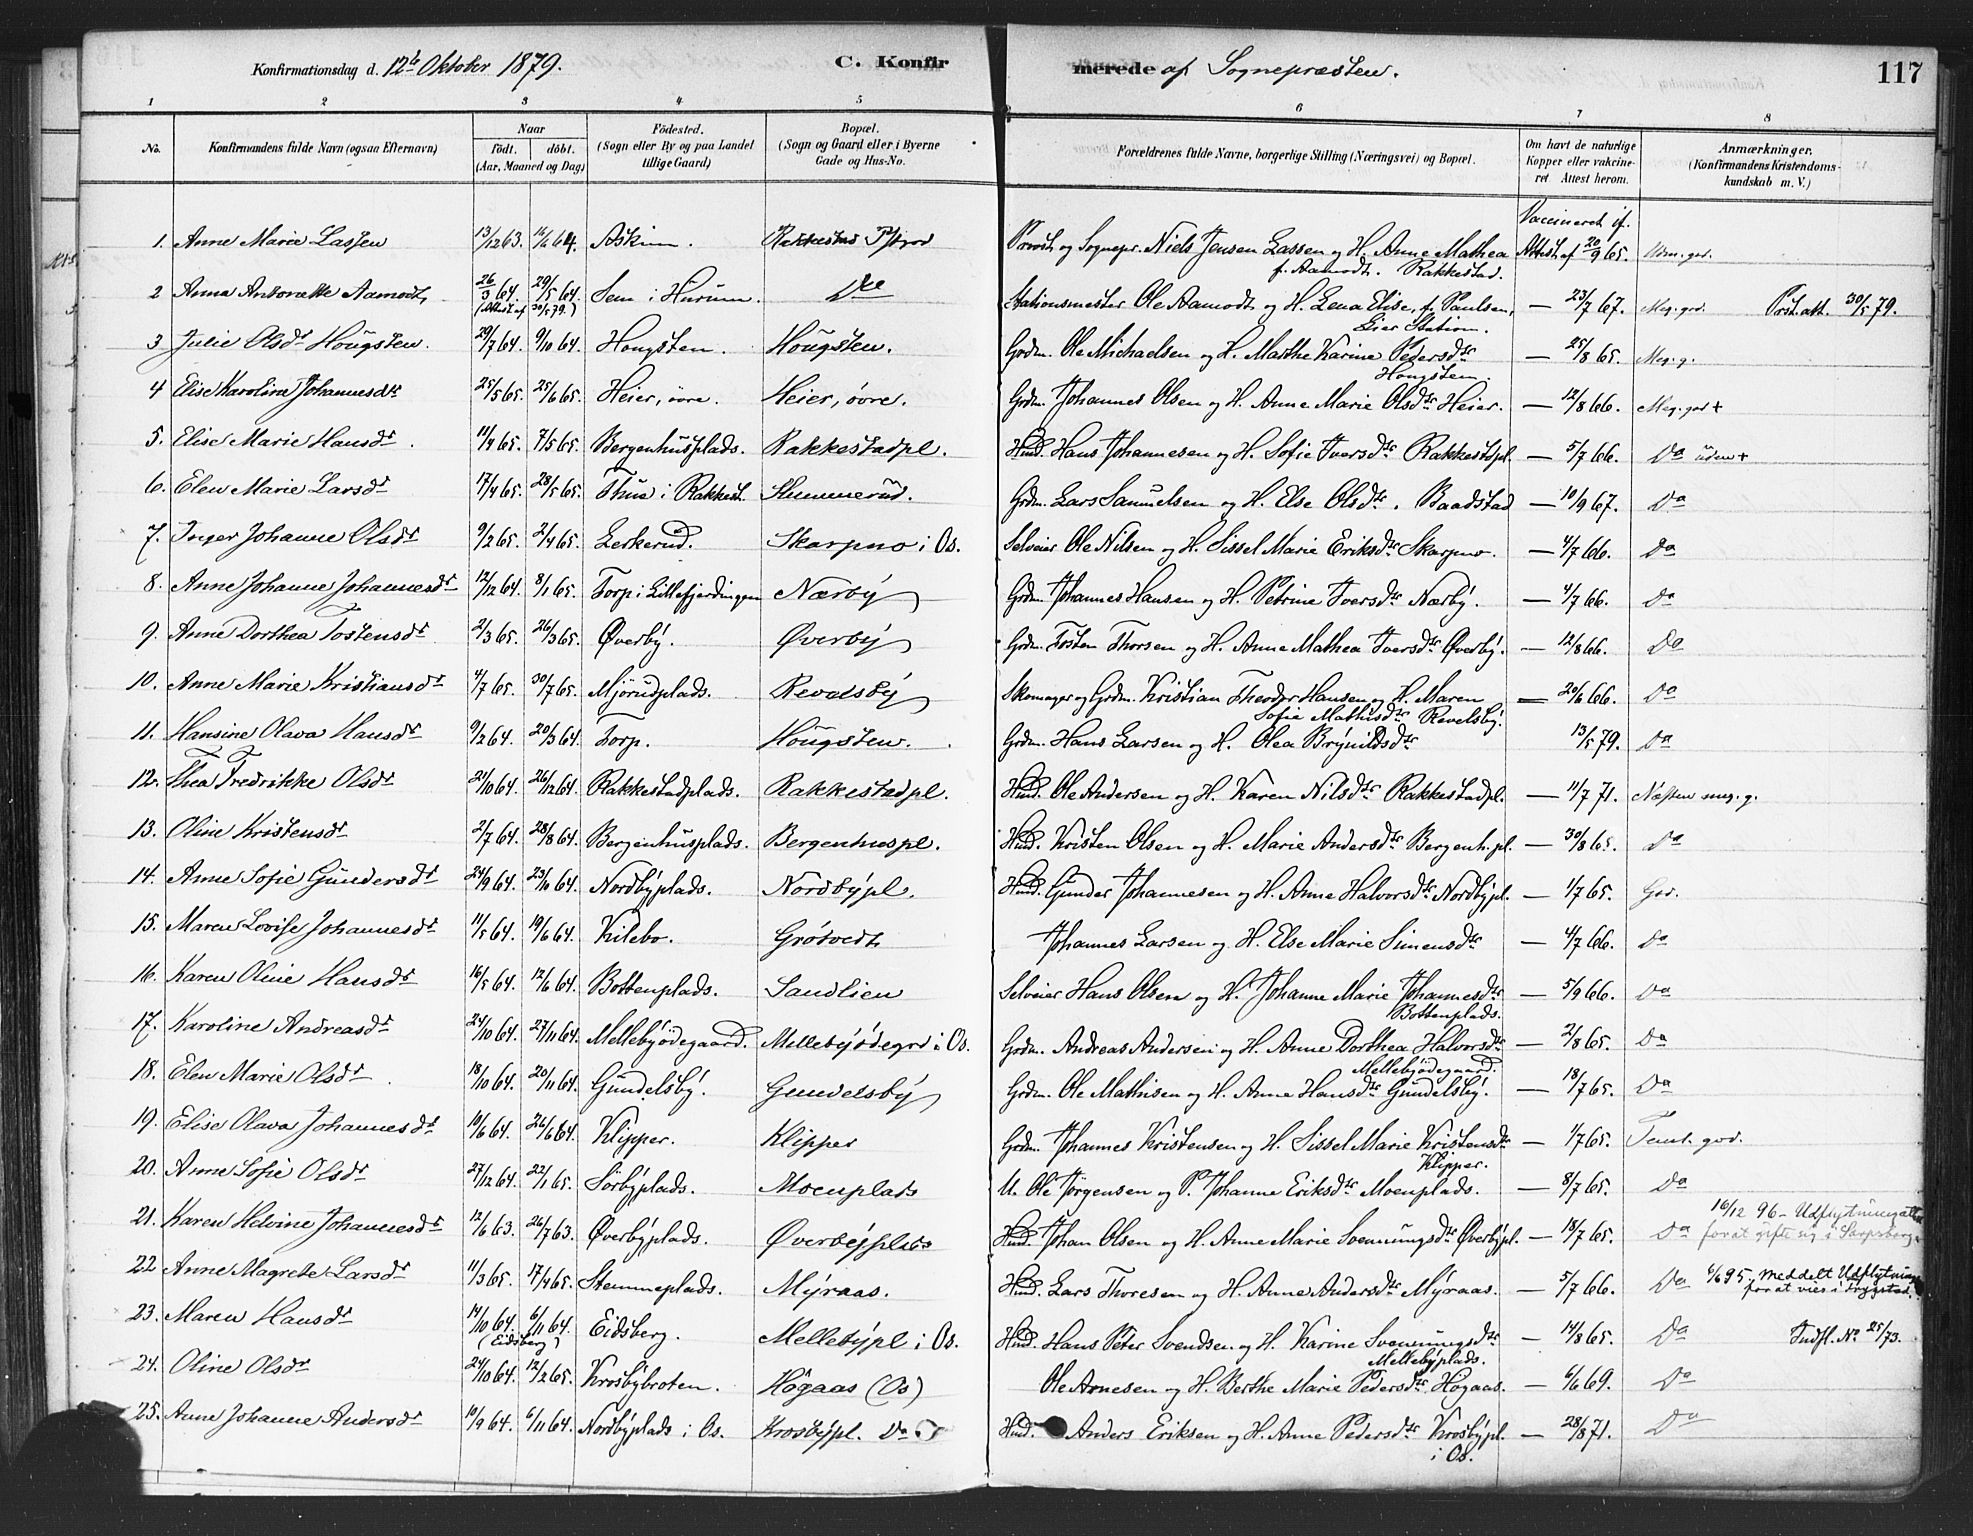 Konfirmationsdag d. 12te Oktober 1879. C. Konfirmerede af Sognepræsten. 117
1 2 3 4 5 6 7 8
No. Konfirmandens fulde Navn (ogsaa Efternavn) Naar født. døbt. (Aar, Maaned og Dag) Fødested. (Sogn eller By og paa Landet tillige Gaard) Bopæl. (Sogn og Gaard eller i Byerne Gade og Hus-No. Forældrenes fulde Navne, borgerlige Stilling (Næringsvei) og Bopæl. Om havt de naturlige Kopper eller vakcineret Attest herom. Anmærkninger. (Konfirmandens Kristendomskundskab m. V.)
1. Anne Marie Lassen 13/12 63. 16/6 64. Askim. Rakkestad Pfgrd Provst og Sognepr. Niels Jensen Lassen og H. Anne Mathea f. Aamodt. Rakkestad. Vaccineret if. Attest af 20/9 65. Udm. god.
2 Anna Antonette Aamodt, 26/3 64. 29/5 64. (Attest af 20/5 79.) Sem i Hurum. Do Stationsmester Ole Aamodt og H. Lena Elise, f. Paulsen, Lier Station. — 23/7 67. Meg. god. Præst. att. 30/5 79.
3 Julie Olsdr Hougsten. 29/7 64. 9/10 64. Hougsten. Hougsten. Grdm. Ole Michaelsen og H. Marthe Karine Pedersdtr Hougsten. — 25/8 65. Meg. g.
4 Elise Karoline Johannesdr 25/5 65. 25/6 65. Heier, övre. Heier, övre. Grdm. Johannes Olsen og H. Anne Marie Olsdtr Heier. — 12/8 66. Meg. god +
5. Elise Marie Hansdr. 11/4 65. 7/5 65. Bergenhusplads. Rakkestadpl. Husd. Hans Johannesen og H. Sofie Iversdtr Rakkestdpl. — 5/7 66. Do uden +
6. Elen Marie Larsdr 17/4 65. 28/5 65. Thue i Rakkest. Slummerud. Grdm. Lars Samuelsen og H. Else Olsdtr. Baadstad — 10/9 67. Do
7. Inger Johanne Olsdr 9/2 65. 2/4 65. Lerkerud. Skarpno i Os. Selveier Ole Nilsen og H. Sissel Marie Eriksdtr Skarpno. — 4/7 66. Do
8. Anne Johanne Johannesdr 12/12 64. 8/1 65. Torp i Lillefjerdingen Nærby Grdm. Johannes Hansen og H. Petrine Iversdtr Nærby. — 4/7 66. Do
9. Anne Dorthea Tostensdr 2/3 65. 26/3 65. Øverby. Øverby Grdm. Tosten Thorsen og H. Anne Mathea Iversdtr Øverby. — 12/8 66. Do
10. Anne Marie Kristiansdr 4/7 65. 30/7 65. Mjörudplads. Revelsby Skomager og Grdm. Kristian Theodor Hansen og H. Maren Sofie Mathisdtr Revelsby. — 20/6 66. Do
11. Hansine Olava Hansdr 9/2 64. 20/3 64. Torp. Hougsten. Grdm. Hans Larsen og H. Olea Brynildsdtr 13/5 79. Do
12. Thea Fredrikke Olsdr 21/10 64. 26/12 64. Rakkestadplads. Rakkestadpl. Husd. Ole Andersen og H. Karen Nilsdtr Rakkestadpl. — 11/7 71. Næsten meg. g.
13. Oline Kristensdr 2/7 64. 28/8 64. Bergenhusplads. Bergenhuspl. Husd. Kristen Olsen og H. Marie Andersdtr Bergenh.pl. — 30/8 65. Do
14. Anne Sofie Gundersdr 24/9 64. 23/10 64. Nordbyplads. Nordbypl. Husd. Gunder Johannesen og H. Anne Halvorsdtr Nordbypl. — 1/7 65. God.
15. Maren Lovise Johannesdr 11/5 64. 19/6 64. Kilebo. Grötvedt Johannes Larsen og H. Else Marie Simensdtr — 4/7 66. Do
16. Karen Oline Hansdr 16/5 64. 12/6 64. Bottenplads. Sandlien Selveier Hans Olsen og H. Johanne Marie Johannesdtr Bottenplads. — 5/9 66. Do
17. Karoline Andreasdr 24/10 64. 27/11 64. Mellebyödegaard. Mellebyödegrd i Os. Grdm. Andreas Andersen og H. Anne Dorthea Halvorsdtr Mellebyödegaard. — 2/8 65. Do
18. Elen Marie Olsdr. 18/10 64. 20/11 64. Gundelsby. Gundelsby Grdm. Ole Mathisen og H. Anne Hansdtr Gundelsby. — 18/7 65. Do
19. Elise Olava Johannesdr 10/6 64. 26/6 64. Klipper. Klipper Grdm. Johannes Kristensen og H. Sissel Marie Kristensdtr Klipper. — 1/7 65. Temt. god.
20. Anne Sofie Olsdr 27/12 64. 22/1 65. Sörbyplads. Moenplads U. Ole Jørgensen og P. Johanne Eriksdtr Moenplads. — 8/7 65. Do
21. Karen Helvine Johannesdr 12/6 63. 26/7 63. Øverbyplads. Øverbyplads Husd. Johan Olsen og H. Anne Marie Svenningsdtr Øverbypl. — 18/7 65. Do 16/12 96 - Udflytningsatt. for at gifte sig i Sarpsborg.
22 Anne Magrete Larsdr 11/3 65. 17/4 65. Stemmeplads. Myraas. Husd. Lars Thoresen og H. Anne Andersdtr Myraas. 5/7 66. Do 6/6 95. meddelt Udflytning for at vies i Trygstad.
23. Maren Hansdr 14/10 64. 6/11 64. (Eidsberg) Eidsberg. Mellebypl i Os. Husd. Hans Peter Svendsen og H. Karine Svenningsdtr Mellebyplads. — 14/8 65. Do Indfl. No 25/73.
24. Oline Olsdr 24/10 64. 12/2 65. Krosbybroten. Högaas (Os) Ole Arnesen og H. Berthe Marie Pedersdtr Högaas. — 6/6 69. Do
25. Anne Johanne Andersdr 10/9 64. 6/11 64. Nordbyplads i Os. Krosbypl. Do Husd. Anders Eriksen og H. Anne Pedersdtr Krosbypl. i Os. — 28/8 71. Do